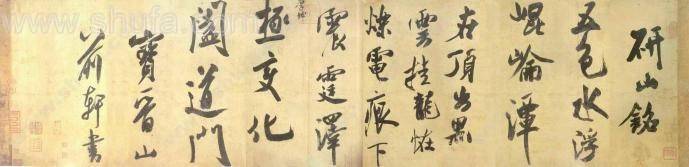 研山銘
五色水浮
崐崘潭
在頂出黑
雲挂龍怪
爍電痕下
震霆澤
極變化
闔道門
寶晉山
前軒書
www.shufa.com